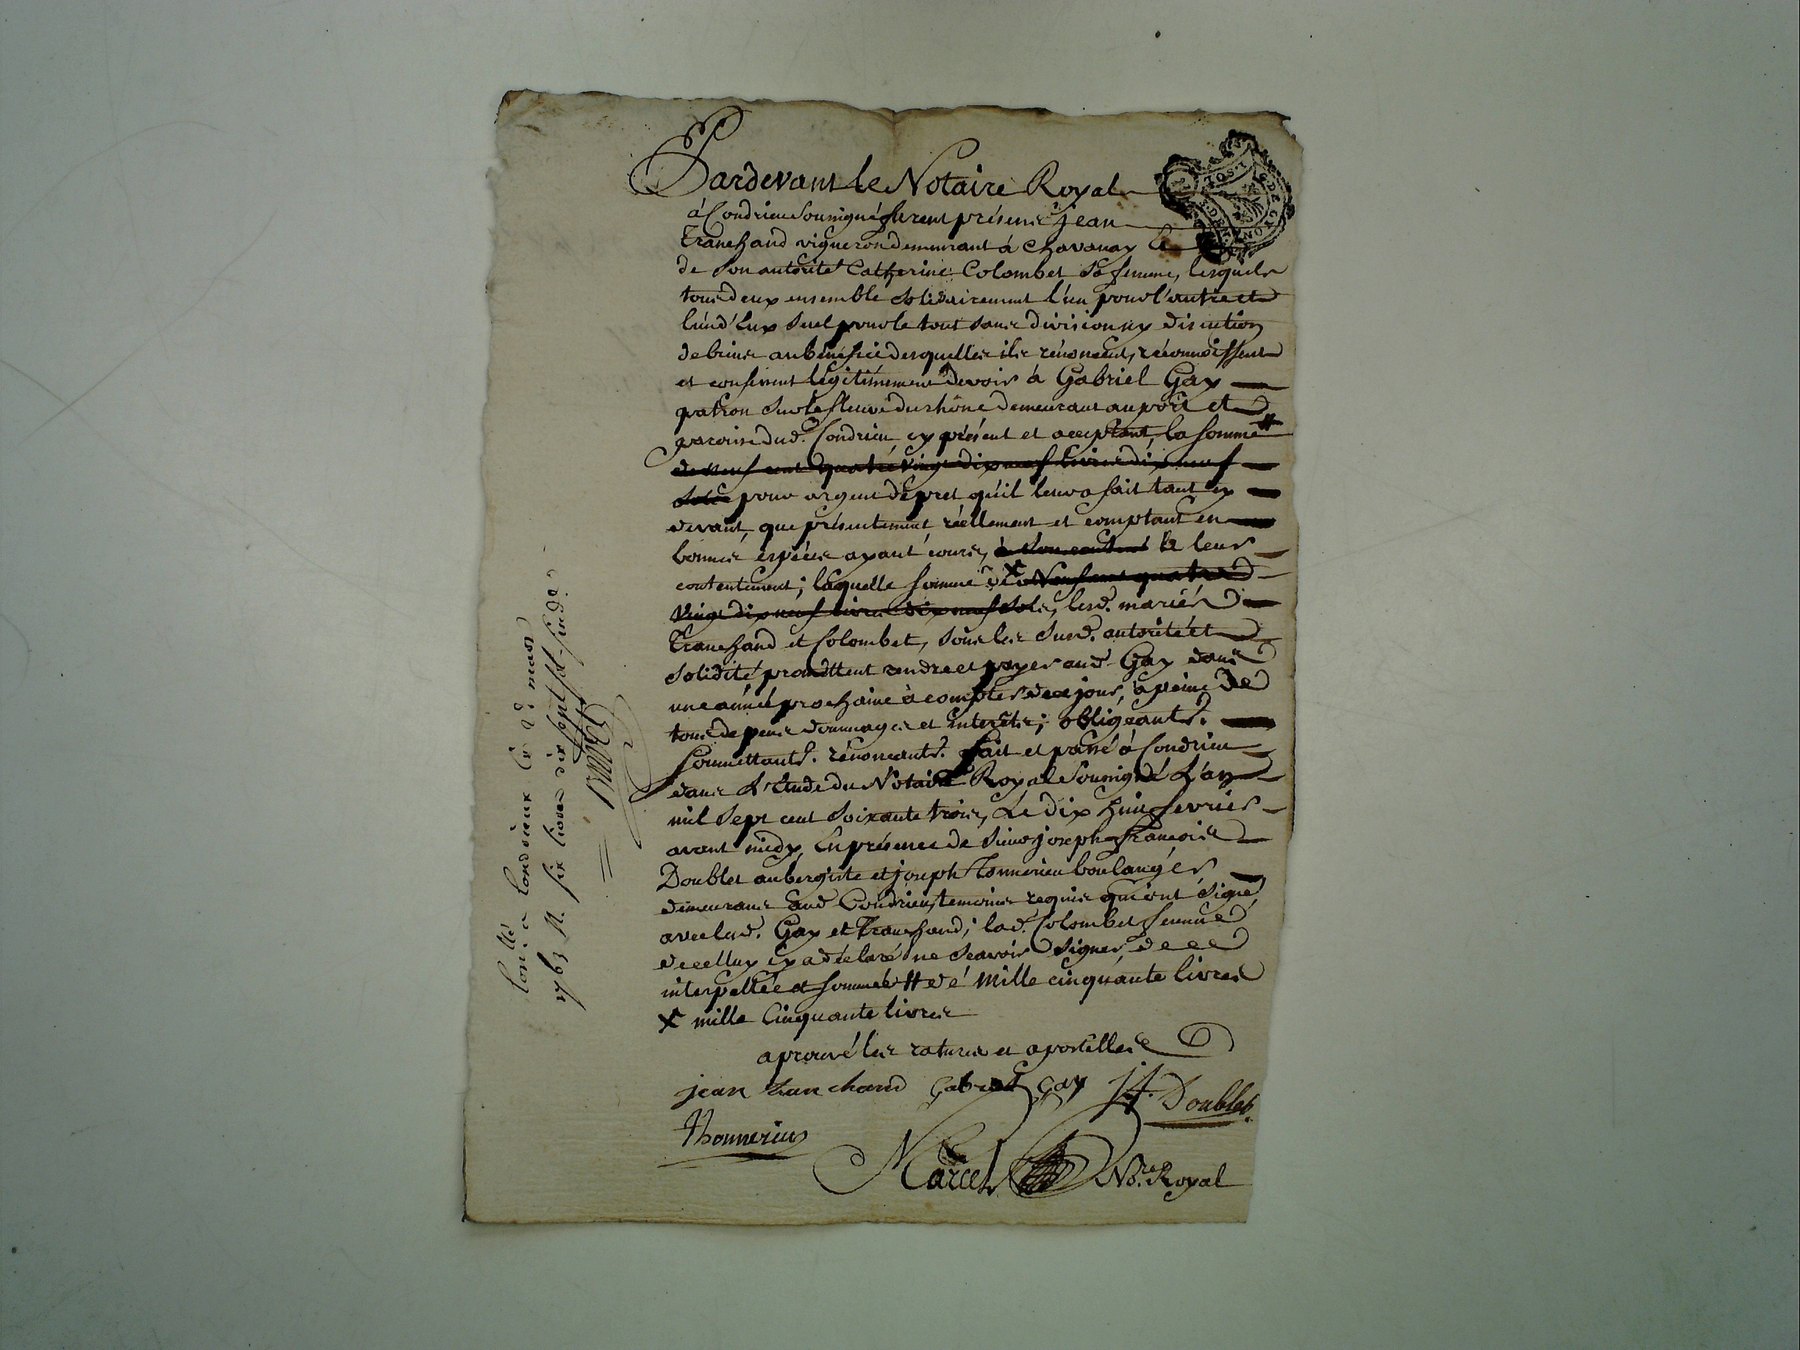 Pardevant le Notaire Royal
à Condrieu Soussigné furent présens Jean
Tranchand vigneron demeurant à Chavanay &
de son autorité Catherine Colombet sa femme, lesquels
tous deux ensemble solidairement l'un pour l'autre et
l'un d'Eux seul pour le tout sans division ny discution
de biens au bénéfice desquelles ils rénoncent, réconnoissent
et confessent légitimement devoir à Gabriel Gay
patron sur le fleuve du rhône demeurant au port et
paroisse dud. Condrieu cy présent et acceptant, la somme #
de neuf cent quatre vingt dix neuf livres dix neuf
sols pour argent de pret qu'il leur a fait tant cy
devant, que présentement réellement et comptant en
bonnes espèces ayant cours, à leur
contentement; laquelle somme de x Neuf cent quatre
vingt dix neuf livres dix neuf sols, lesd. mariés
Tranchand et Colombet, sous les susd. autorité et
solidité promettent rendre et payer aud. Gay dans
une année prochaine à compter de ce jour, à peine de
tous depens dommages et interets; obligeants.
soumettants. rénonceants. fait et passé à Condrieu
dans L'Etude du Notaire Royal Soussigné L'an
mil sept cent soixante trois, Le dix huit fevrier
avant midy, En présence de Sieur joseph françois
Doublet aubergiste et joseph Tonnerieu boulanger
demeurans aud. Condrieu, temoins requis qui ont signé
avec lesd. Gay et Tranchand; lad. Colombet femme
dicelluy cy a déclaré ne scavoir signer, de ce
interpellée et sommée # de mille cinquante livres
x mille cinquante livres
aprouvé les ratures et apostilles
jean tranchand gabriel gay J f. Doublet
Thonnerieu
Marcel No.re Royal
Con.llé a Condrieux le 2e mars
1763 R. six livres dix sept sols six d.